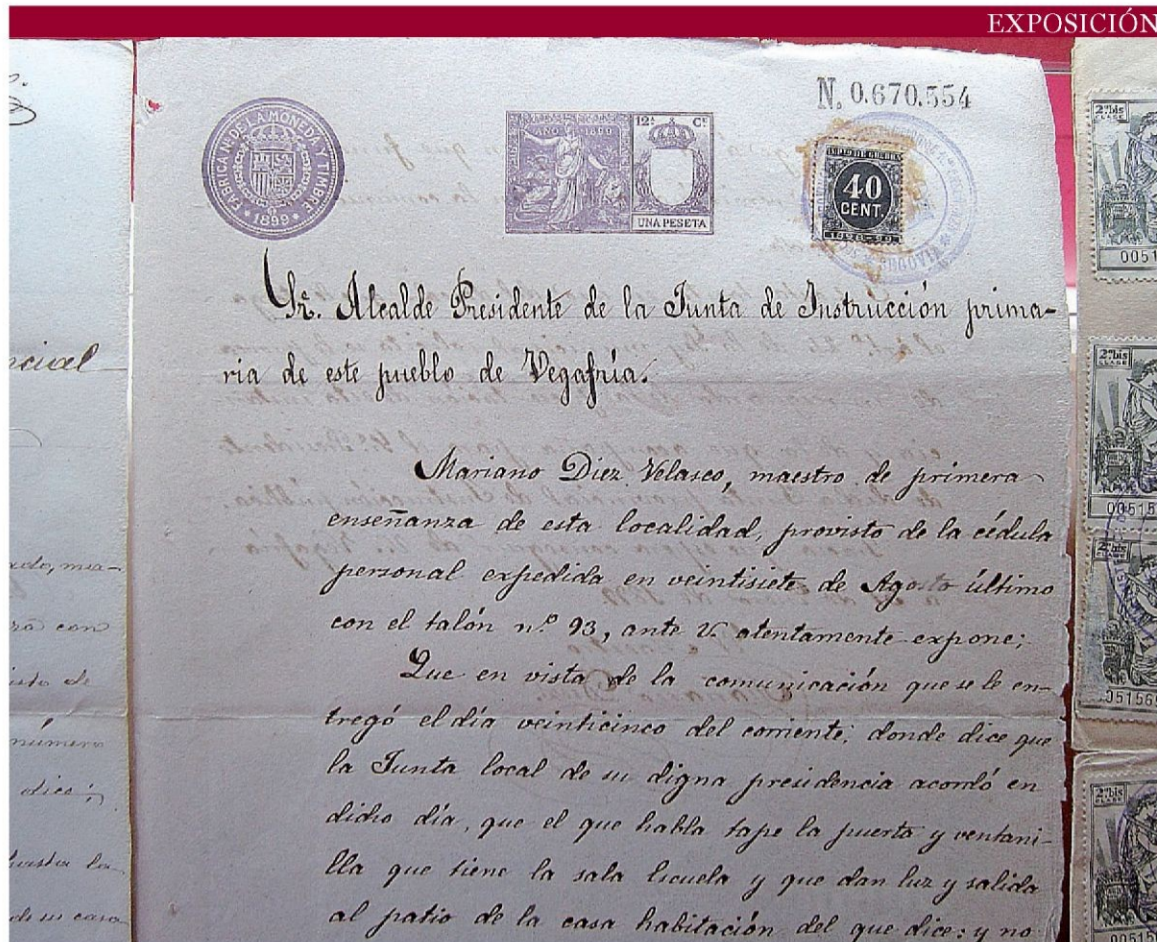 EXPOSICIÓN
N. 0.670.554
FABRICA NAL. DE LA MONEDA Y TIMBRE
1899
AÑO 1899
12ª Cª
UNA PESETA
IMPTO DE GUERRA
40
CENT.
1898-99
SEGOVIA
Sr. Alcalde Presidente de la Junta de Instrucción prima-
ria de este pueblo de Vegafría.
Mariano Diez Velasco, maestro de primera
enseñanza de esta localidad, provisto de la cédula
personal expedida en veintisiete de Agosto último
con el talón n.º 93, ante V. atentamente expone;
Que en vista de la comunicación que se le en-
tregó el día veinticinco del corriente; donde dice que
la Junta local de su digna presidencia acordó en
dicho día, que el que habla tape la puerta y ventani-
lla que tiene la sala Escuela y que dan luz y salida
al patio de la casa habitación del que dice; y no
ncial
ado, ma-
za con
isto de
número
dice;
de su casa
2ª bis
CLASE
0051
2ª bis
CLASE
00515
2ª bis
CLASE
05156
2ª bis
CLASE
00515